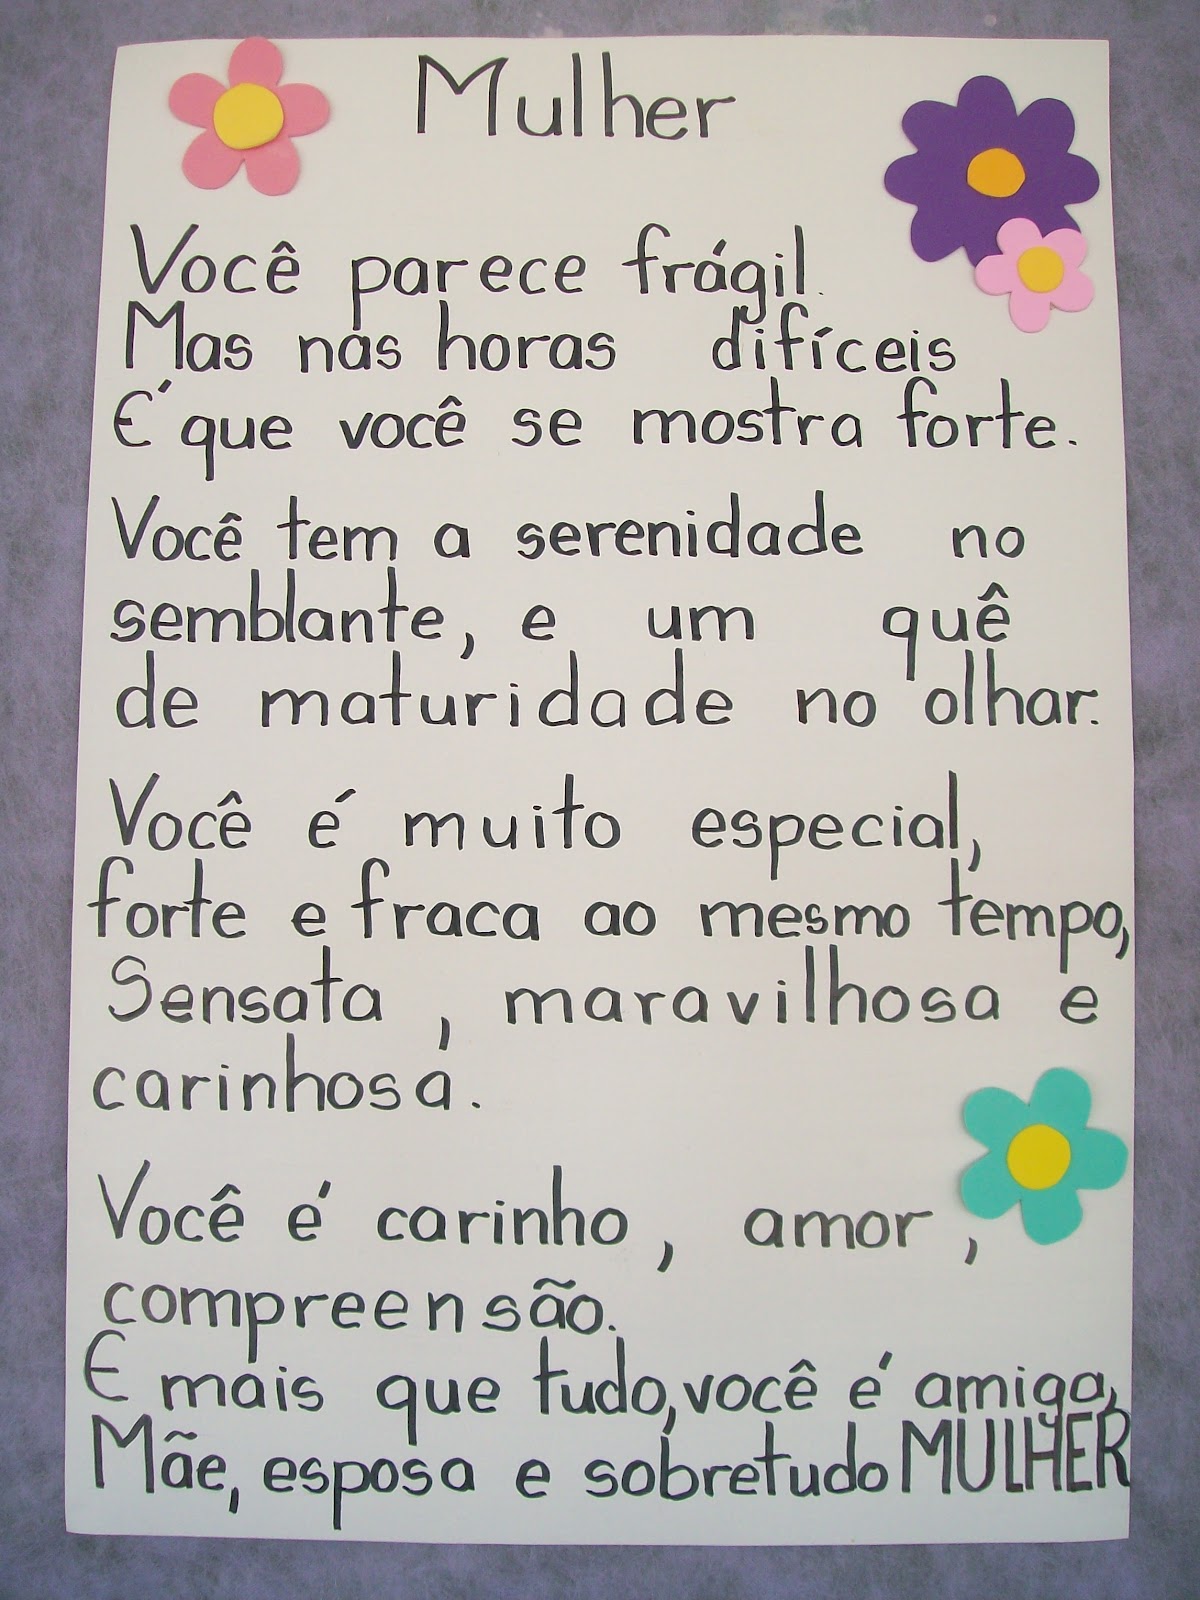 Mulher
Você parece frágil.
Mas nas horas difíceis
É que você se mostra forte.
Você tem a serenidade no
semblante, e um quê
de maturidade no olhar.
Você é muito especial,
forte e fraca ao mesmo tempo,
Sensata, maravilhosa e
carinhosa.
Você é carinho, amor,
compreensão.
E mais que tudo, você é amiga,
Mãe, esposa e sobretudo MULHER